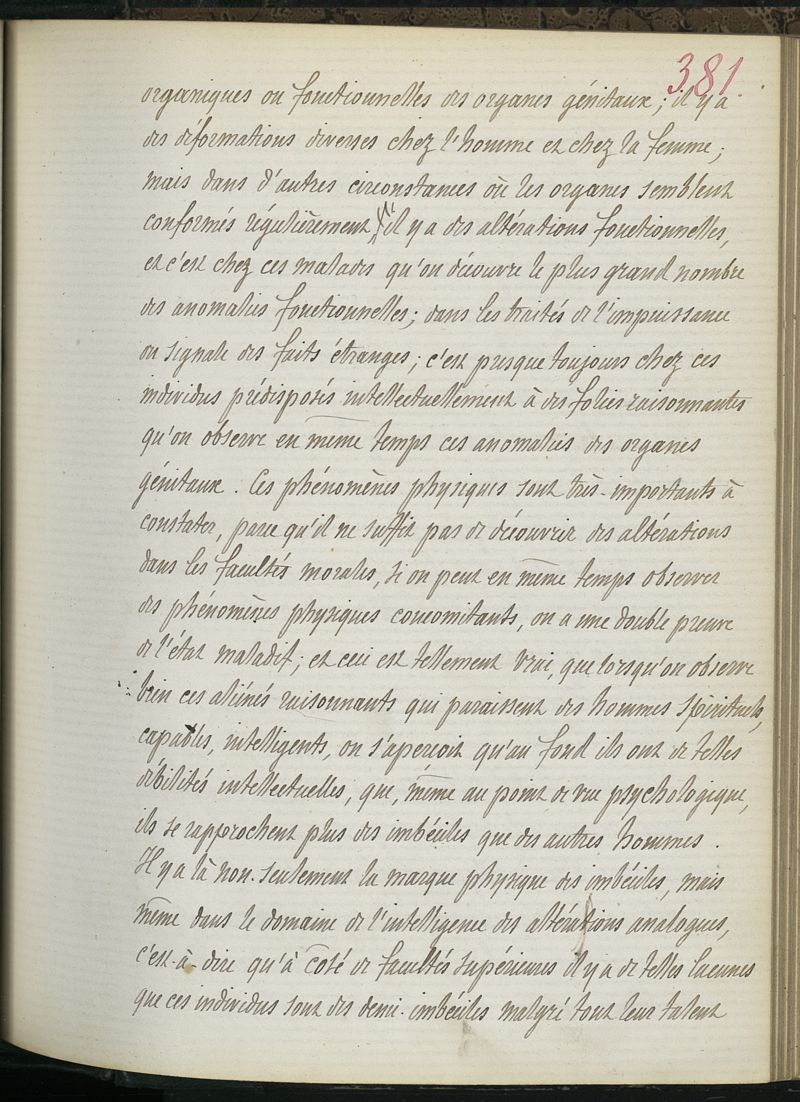 381.
organiques ou fonctionnelles des organes génitaux ; il y a
des déformations diverses chez l'homme et chez la femme ;
mais dans d'autres circonstances où les organes semblent
conformés régulièrement, il y a des altérations fonctionnelles,
et c'est chez ces malades qu'on découvre le plus grand nombre
des anomalies fonctionnelles ; dans les traités de l'impuissance
on signale des faits étranges ; c'est presque toujours chez ces
individus prédisposés intellectuellement à des folies raisonnantes
qu'on observe en même temps ces anomalies des organes
génitaux . Ces phénomènes physiques sont très-importants à
constater, parce qu'il ne suffit pas de découvrir des altérations
dans les facultés morales, si on peut en même temps observer
des phénomènes physiques concomitants, on a une double preuve
de l'état maladif ; et ceci est tellement vrai, que lorsqu'on observe
bien ces aliénés raisonnants qui paraissent des hommes spirituels,
capables, intelligents, on s'aperçoit qu'au fond ils ont de telles
débilités intellectuelles, que, même au point de vue psychologique,
ils se rapprochent plus des imbéciles que des autres hommes .
Il y a là non-seulement la marque physique des imbéciles, mais
même dans le domaine de l'intelligence des altérations analogues,
c'est-à-dire qu'à côté de facultés supérieures il y a de telles lacunes
que ces individus sont des demi-imbéciles malgré tout leur talent